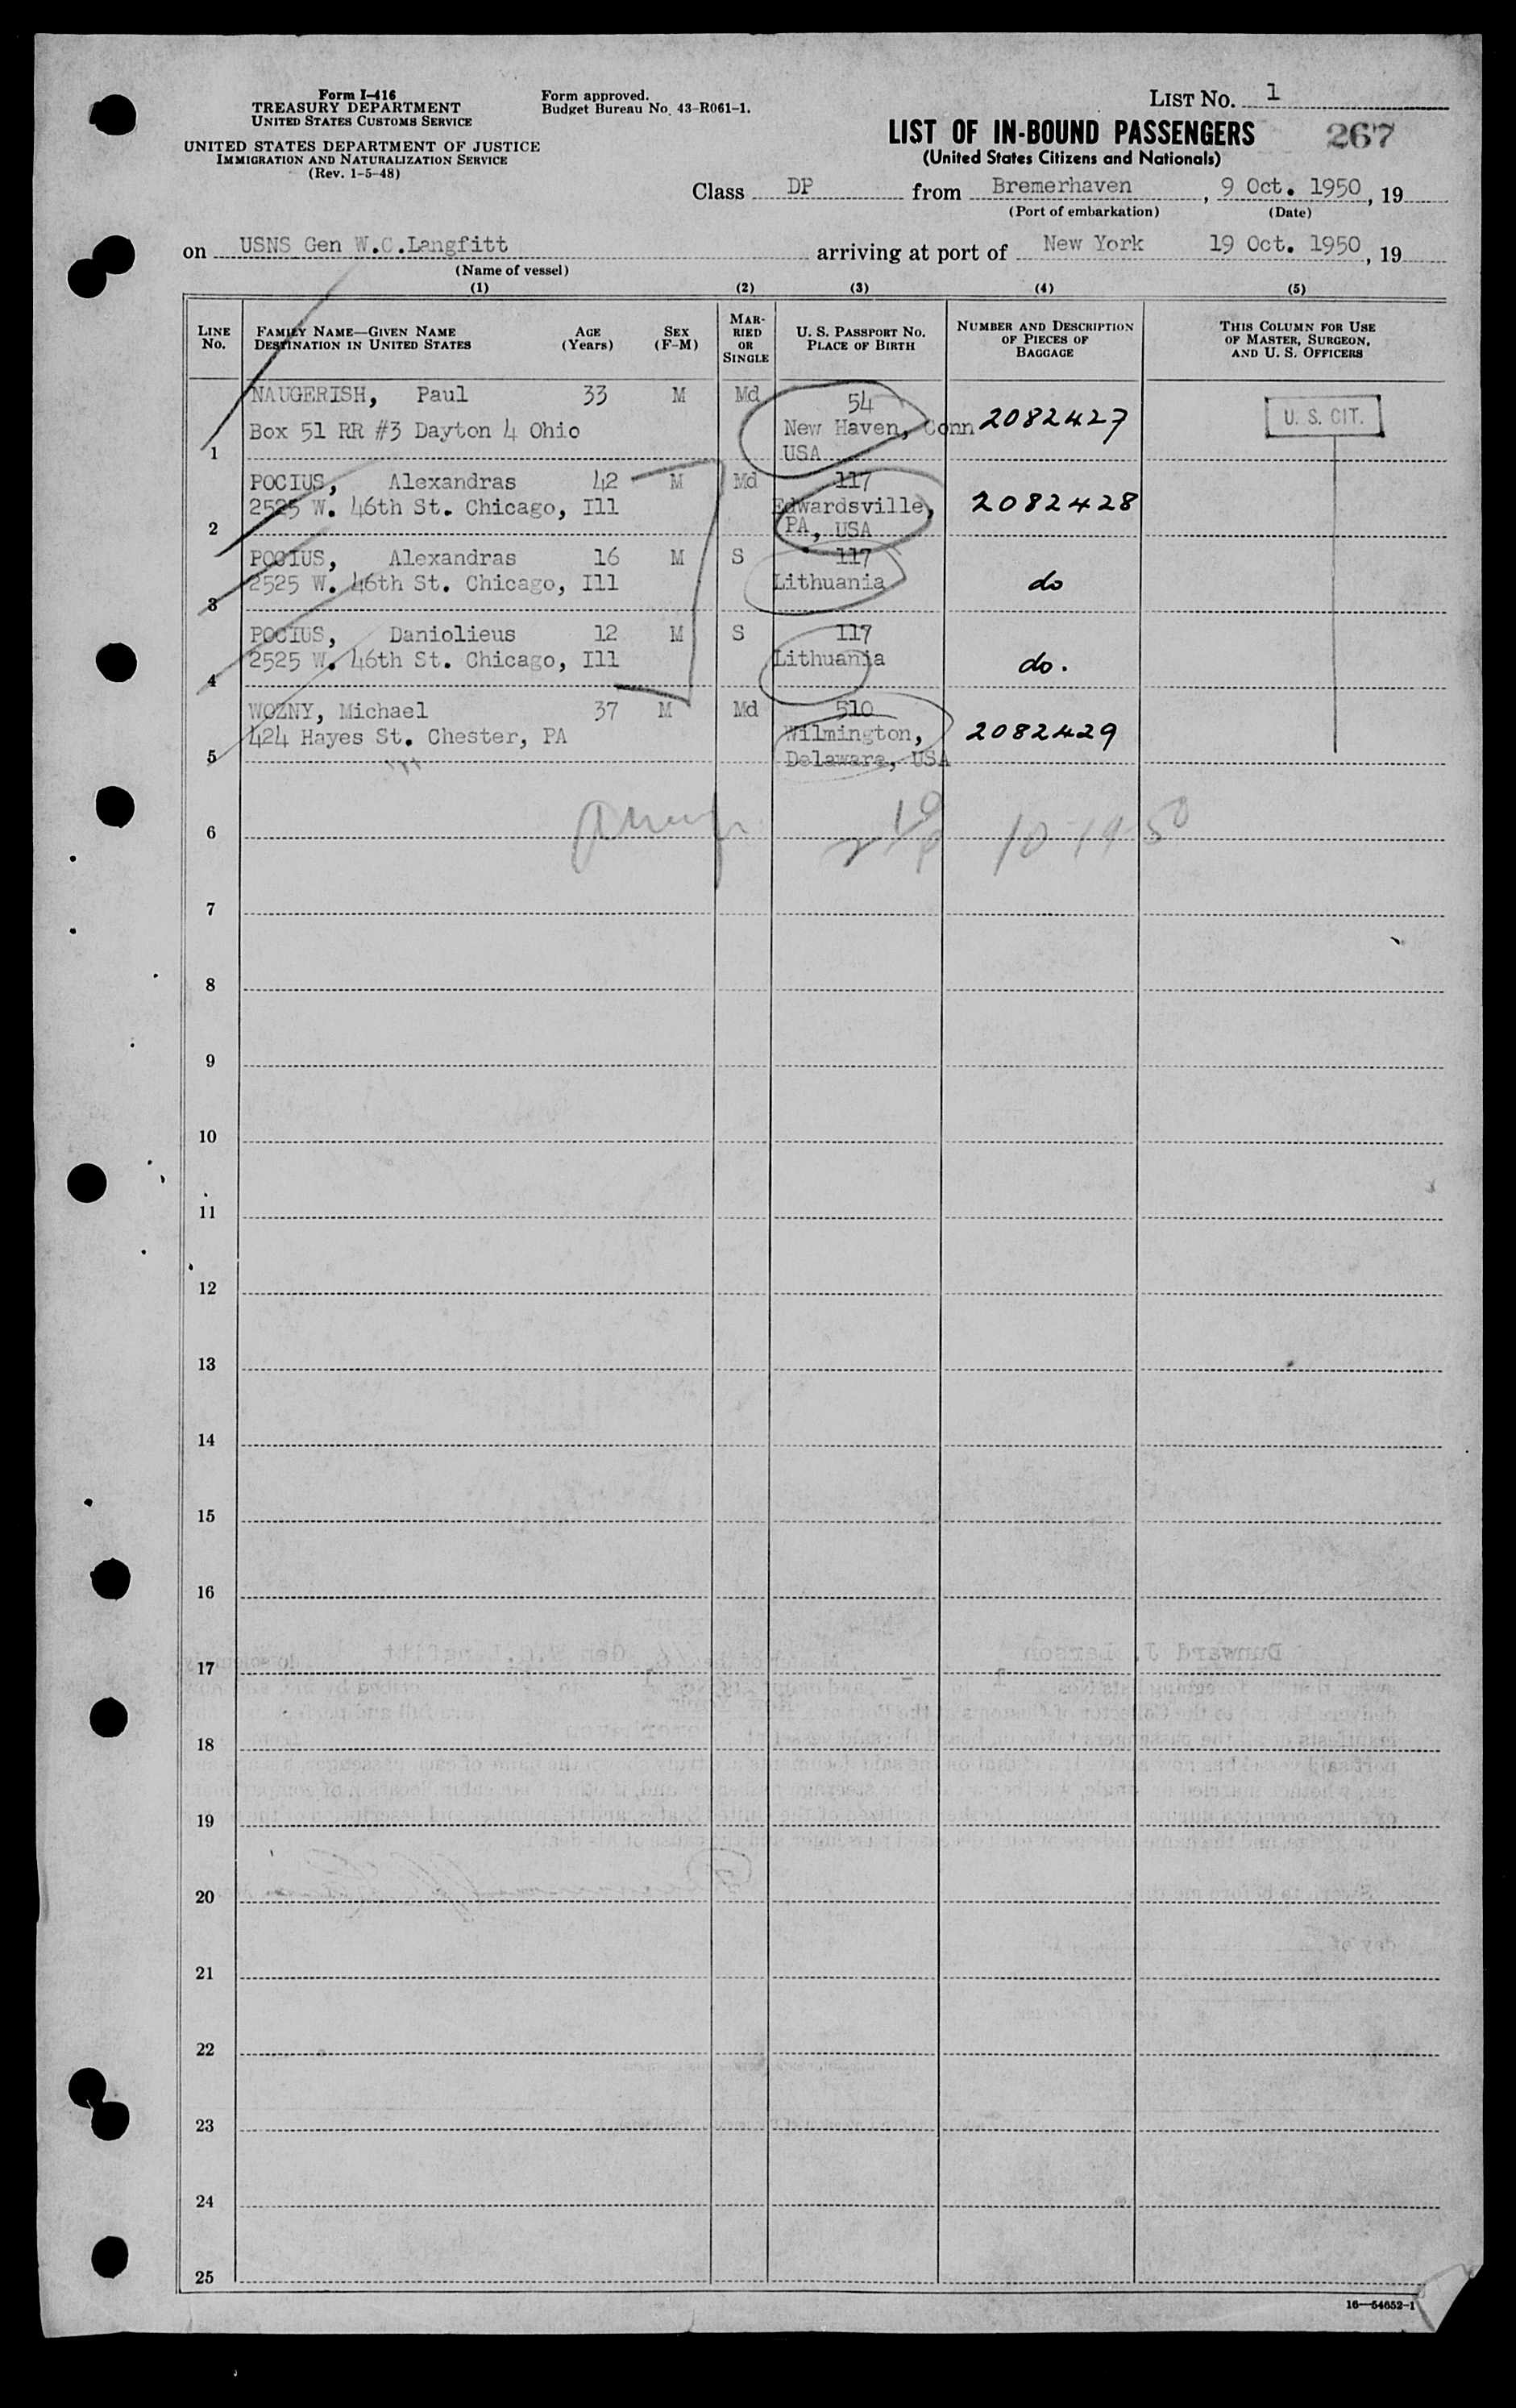 Form I-416
TREASURY DEPARTMENT
UNITED STATES CUSTOMS SERVICE
UNITED STATES DEPARTMENT OF JUSTICE
IMMIGRATION AND NATURALIZATION SERVICE
(Rev. 1-5-48)
Form approved.
Budget Bureau No. 43-R061-1.
LIST NO. 1
LIST OF IN-BOUND PASSENGERS 267
(United States Citizens and Nationals)
Class DP from Bremerhaven, 9 Oct. 1950, 19
(Port of embarkation) (Date)
on USNS Gen W.C.Langfitt arriving at port of New York 19 Oct. 1950, 19
(Name of vessel)
(1) (2) (3) (4) (5)
LINE No. FAMILY NAME—GIVEN NAME DESTINATION IN UNITED STATES AGE (Years) SEX (F-M) MARRIED OR SINGLE U. S. PASSPORT NO. PLACE OF BIRTH NUMBER AND DESCRIPTION OF PIECES OF BAGGAGE THIS COLUMN FOR USE OF MASTER, SURGEON, AND U. S. OFFICERS
NAUGERISH, Paul 33 M Md 54
Box 51 RR #3 Dayton 4 Ohio New Haven, Conn 2082427 U. S. CIT.
1 USA
POCIUS, Alexandras 42 M Md 117
2525 W. 46th St. Chicago, Ill Edwardsville, 2082428
2 PA, USA
POCIUS, Alexandras 16 M S 117
2525 W. 46th St. Chicago, Ill Lithuania do
3
POCIUS, Daniolieus 12 M S 117
2525 W. 46th St. Chicago, Ill Lithuania do.
4
WOZNY, Michael 37 M Md 510
424 Hayes St. Chester, PA Wilmington, 2082429
5 Delaware, USA
6 10-19-50
7
8
9
10
11
12
13
14
15
16
17
18
19
20
21
22
23
24
25
16—54652-1